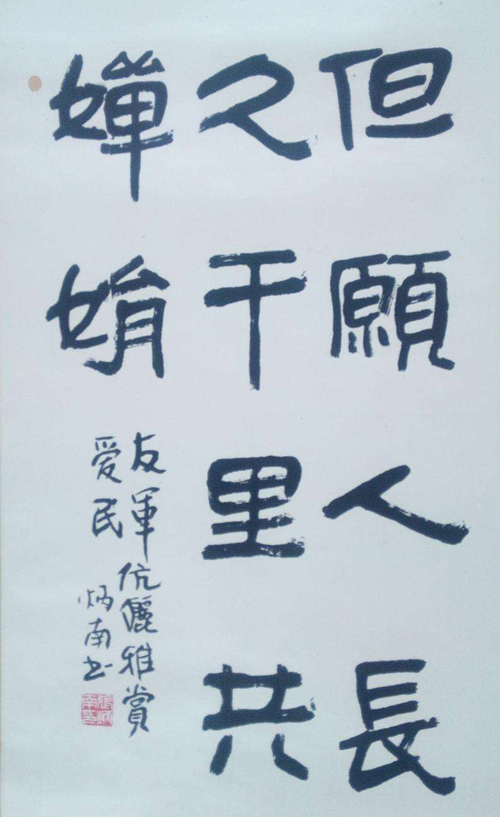 但願人長
久千里共
嬋娟
友軍
爱民
伉儷雅賞
炳南书